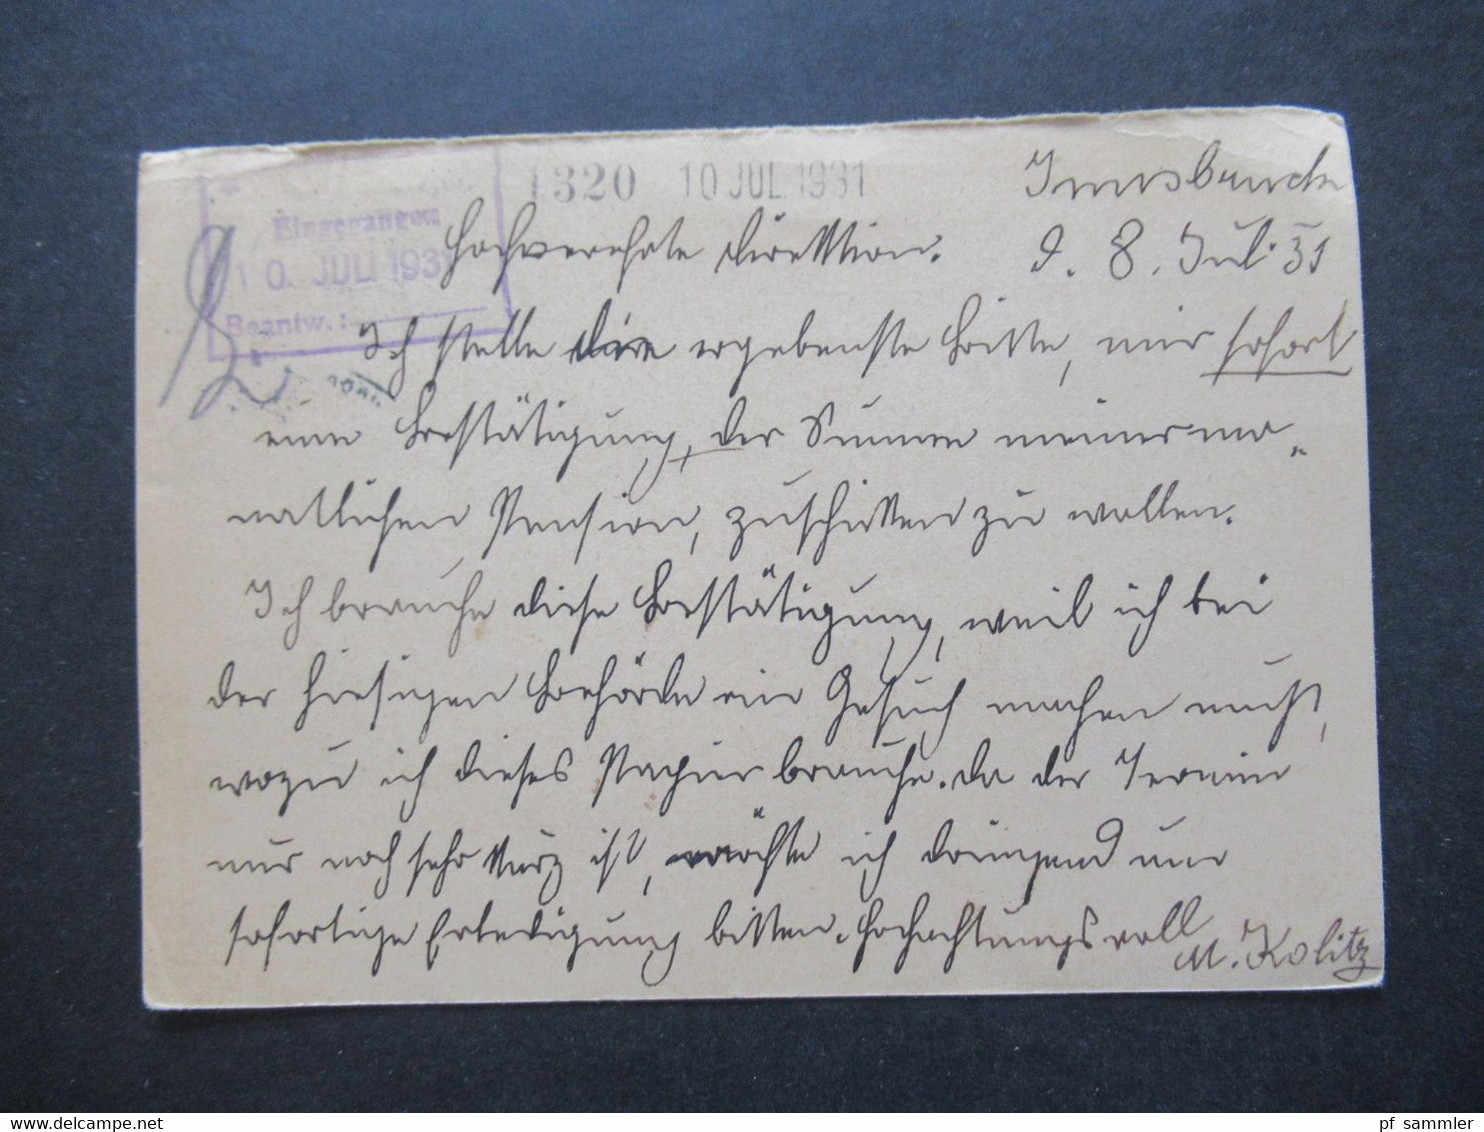 1320 10 JUL. 1931
Eingegangen
10. JULI 1931
Beantw.:
Innsbruck
d. 8. Juli 31
Hochverehrte Direktion.
Ich stelle die ergebenste Bitte, mir sofort
eine Bestätigung, der Summe meiner mo„
natlichen Pension, zuschicken zu wollen.
Ich brauche diese Bestätigung, weil ich bei
der hiesigen Behörde ein Gesuch machen muß,
wozu ich dieses Papier brauche. Da der Termin
nur noch sehr kurz ist, möchte ich dringend um
sofortige Erledigung bitten. Hochachtungsvoll
M. Kolitz
delcampe.net
pf_sammler